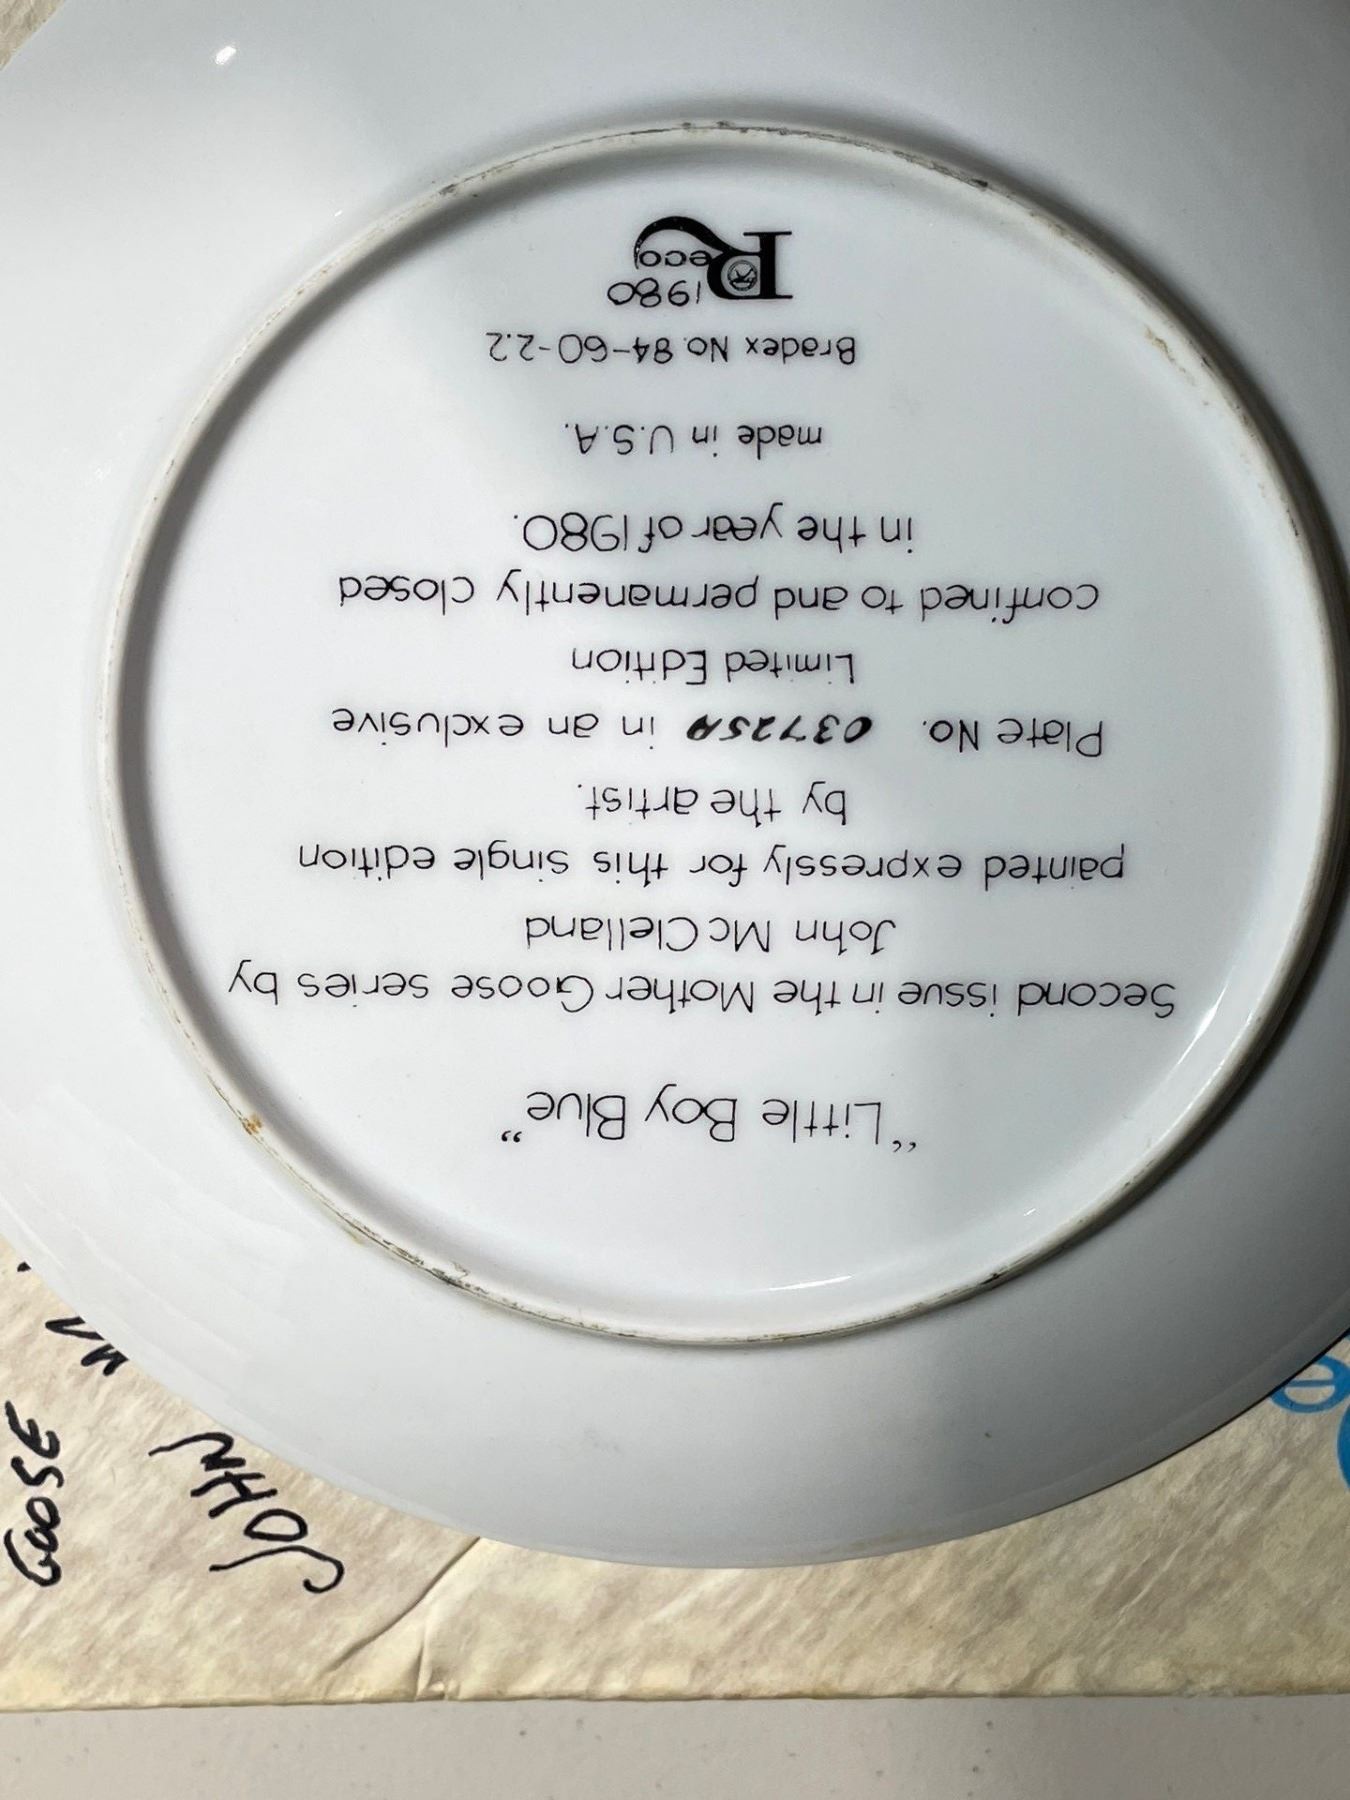 “Little Boy Blue”
Second issue in the Mother Goose series by
John McClelland
painted expressly for this single edition
by the artist.
Plate No. 03725A in an exclusive
Limited Edition
confined to and permanently closed
in the year of 1980.
made in U.S.A.
Bradex No. 84-60-2.2
1980
Reco
GOOSE
JOHN